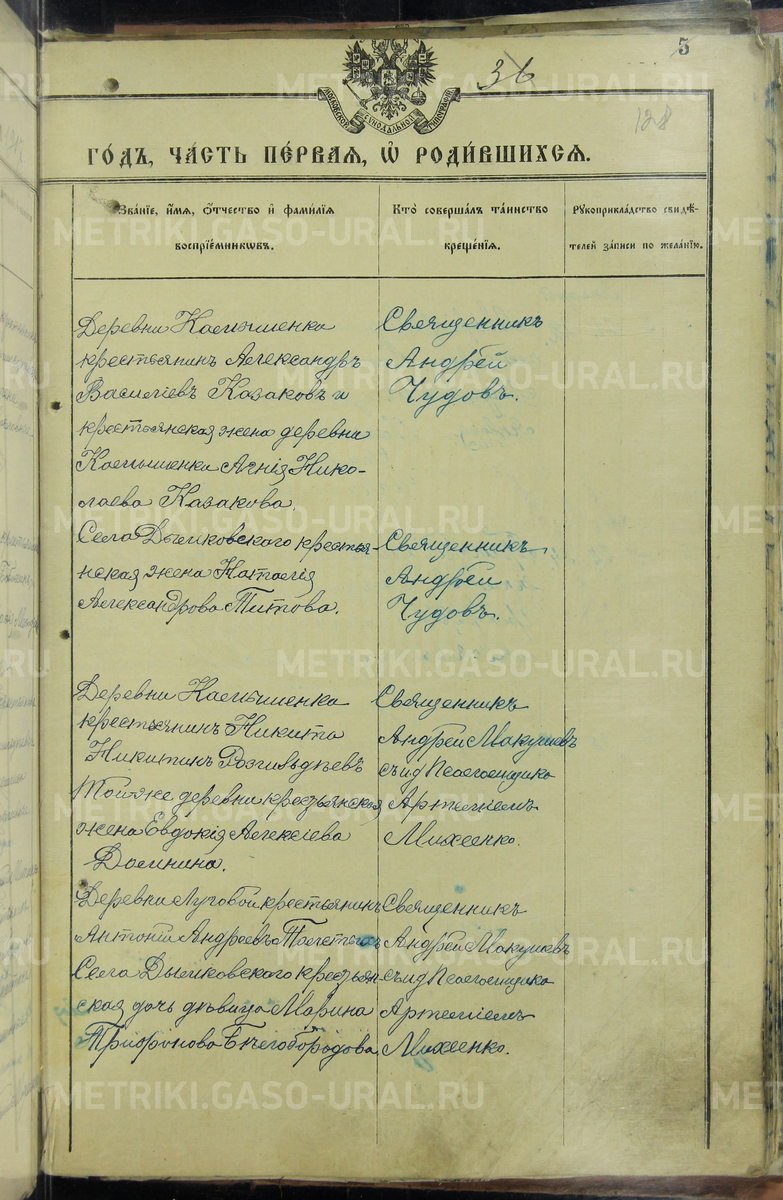 5
36
128
МОСКОВСКОЙ СѴНОДАЛЬНОЙ ТИПОГРАФІИ
ГО́ДЪ, ЧА́СТЬ ПЕ́РВАЯ, Ѡ҆ РОДИ́ВШИХСѦ.
Зва́нїе, и҆́мѧ, ѻ҆́тчество и҆ фами́лїѧ
воспрїе́мникѡвъ.
Кто̀ соверша́лъ та́инство
креще́нїѧ.
Рꙋкоприкла́дство свидѣ́-
телей за́писи по жела́нїю.
Деревни Камышенка
крестьянинъ Александръ
Василіевъ Казаковъ и
крестьянская жена деревни
Камышенка Агнія Нико-
лаева Казакова.
Священникъ
Андрей
Чудовъ.
Села Дымковского крестья-
нская жена Наталія
Александрова Титова.
Священникъ
Андрей
Чудовъ.
Деревни Камышенка
крестьянинъ Никита
Никитинъ
Той же деревни крестьянская
жена Евдокія Алексіева
Долинина.
Священникъ
Андрей Макушевъ
съ и д Псаломщика
Артеміемъ
Михеенко.
Деревни Луговой крестьянинъ
Антоній Андреевъ
Села Дымковского крестьян-
ская дочь дѣвица Марина
Трифонова Бѣлобородова
Священникъ
Андрей Макушевъ
съ и д Псаломщика
Артеміемъ
Михеенко.
METRIKI.GASO-URAL.RU